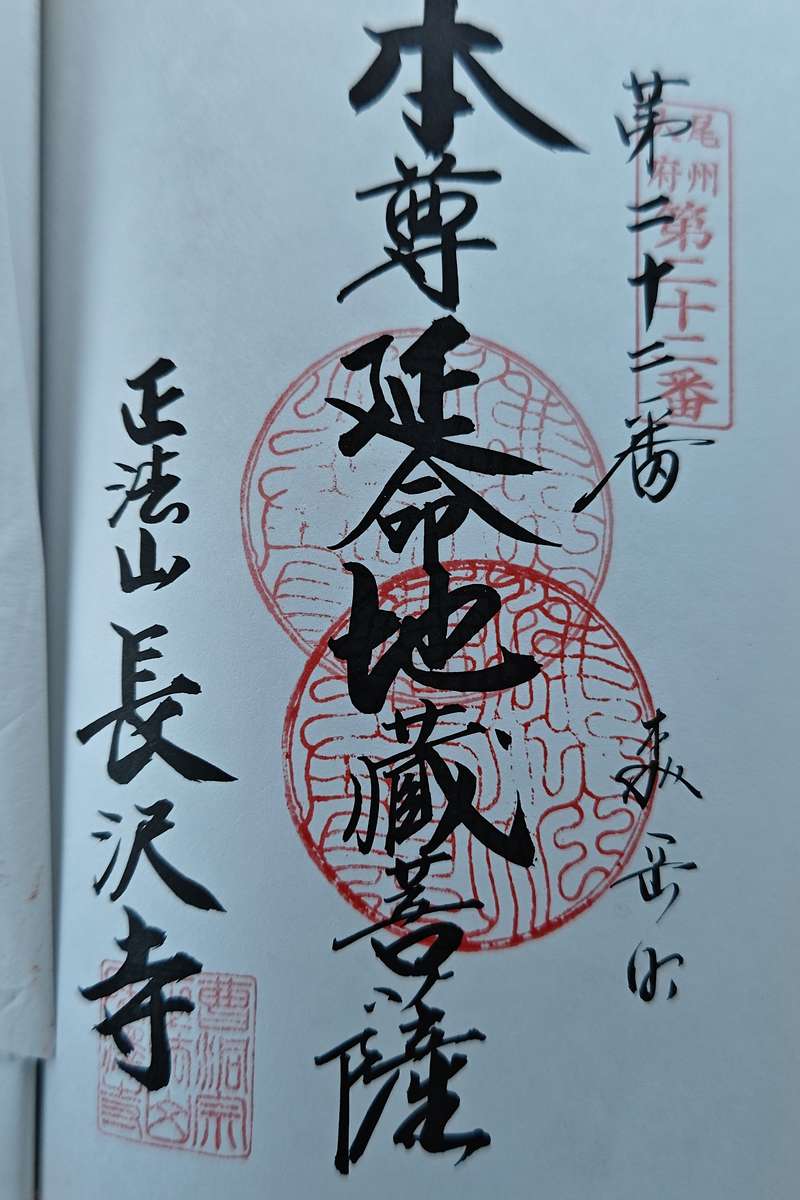 尾州
大府
第二十二番
第二十二番
本尊延命地蔵菩薩
正法山長沢寺
曹洞宗